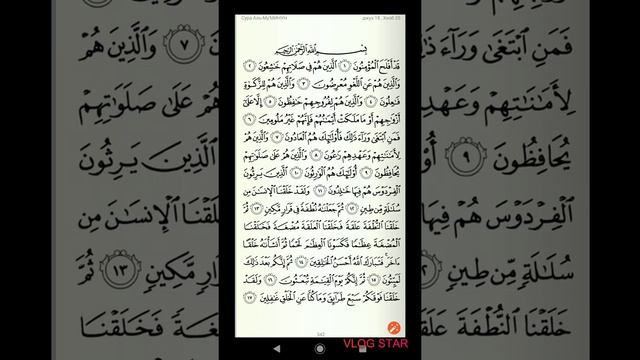 Сура Аль-Му'МИНУН
джуз 18 , Хизб 35
بِسْمِ اللَّهِ الرَّحْمَٰنِ الرَّحِيمِ
قَدْ أَفْلَحَ الْمُؤْمِنُونَ ١ الَّذِينَ هُمْ فِي صَلَاتِهِمْ خَاشِعُونَ ٢
وَالَّذِينَ هُمْ عَنِ اللَّغْوِ مُعْرِضُونَ ٣ وَالَّذِينَ هُمْ لِلزَّكَوٰةِ
فَاعِلُونَ ٤ وَالَّذِينَ هُمْ لِفُرُوجِهِمْ حَافِظُونَ ٥ إِلَّا عَلَىٰ
أَزْوَاجِهِمْ أَوْ مَا مَلَكَتْ أَيْمَانُهُمْ فَإِنَّهُمْ غَيْرُ مَلُومِينَ ٦
فَمَنِ ابْتَغَىٰ وَرَاءَ ذَٰلِكَ فَأُولَٰئِكَ هُمُ الْعَادُونَ ٧ وَالَّذِينَ هُمْ
لِأَمَانَاتِهِمْ وَعَهْدِهِمْ رَاعُونَ ٨ وَالَّذِينَ هُمْ عَلَىٰ صَلَوَاتِهِمْ
يُحَافِظُونَ ٩ أُولَٰئِكَ هُمُ الْوَارِثُونَ ١٠ الَّذِينَ يَرِثُونَ
الْفِرْدَوْسَ هُمْ فِيهَا خَالِدُونَ ١١ وَلَقَدْ خَلَقْنَا الْإِنسَانَ مِن
سُلَالَةٍ مِّن طِينٍ ١٢ ثُمَّ جَعَلْنَاهُ نُطْفَةً فِي قَرَارٍ مَّكِينٍ ١٣ ثُمَّ
خَلَقْنَا النُّطْفَةَ عَلَقَةً فَخَلَقْنَا الْعَلَقَةَ مُضْغَةً فَخَلَقْنَا
الْمُضْغَةَ عِظَامًا فَكَسَوْنَا الْعِظَامَ لَحْمًا ثُمَّ أَنشَأْنَاهُ خَلْقًا
آخَرَ فَتَبَارَكَ اللَّهُ أَحْسَنُ الْخَالِقِينَ ١٤ ثُمَّ إِنَّكُم بَعْدَ ذَٰلِكَ
لَمَيِّتُونَ ١٥ ثُمَّ إِنَّكُمْ يَوْمَ الْقِيَامَةِ تُبْعَثُونَ ١٦ وَلَقَدْ
خَلَقْنَا فَوْقَكُمْ سَبْعَ طَرَائِقَ وَمَا كُنَّا عَنِ الْخَلْقِ غَافِلِينَ ١٧
342
VLOG STAR